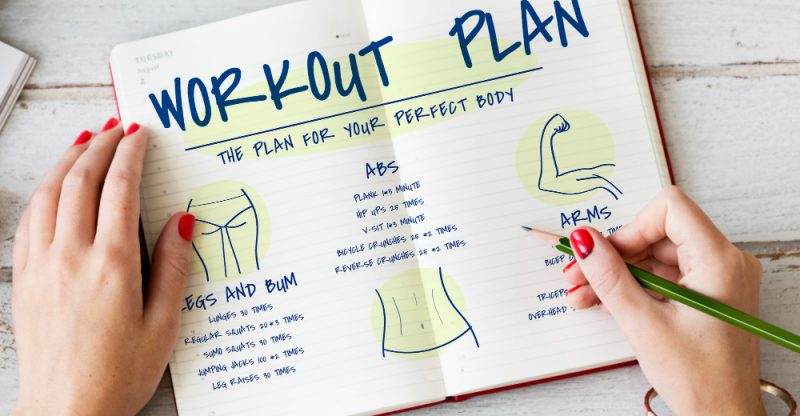 TUESDAY
August
2
WORKOUT PLAN
THE PLAN FOR YOUR PERFECT BODY
ABS
PLANK 1*3 MINUTE
HIP UPS 25 TIMES
V-SIT 1*3 MINUTE
BICYCLE CRUNCHES 25 *2 TIMES
REVERSE CRUNCHES 25 *2 TIMES
LEGS AND BUM
LUNGES 30 TIMES
REGULAR SQUATS 20*3 TIMES
SUMO SQUATS 30 TIMES
JUMPING JACKS 100 *2 TIMES
LEG RAISES 30 TIMES
ARMS
BICEP
TRICEPS
OVERHEAD